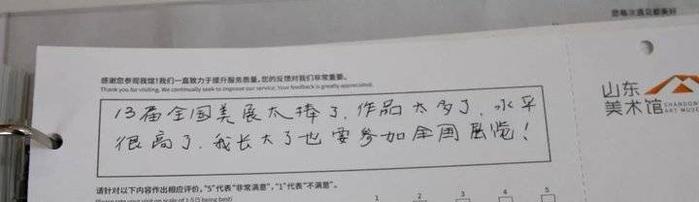 感谢您参观我馆！我们一直致力于提升服务质量，您的反馈对我们非常重要。
Thank you for visiting. We continually seek to improve our service. Your feedback is greatly appreciated.
13届全国美展太棒了，作品太多了，水平
很高了，我长大了也要参加全国展览！
山东
美术馆
SHANDON
ART MUSE
请针对以下内容作出相应评价，"5"代表"非常满意"，"1"代表"不满意"。
1 2 3 4 5